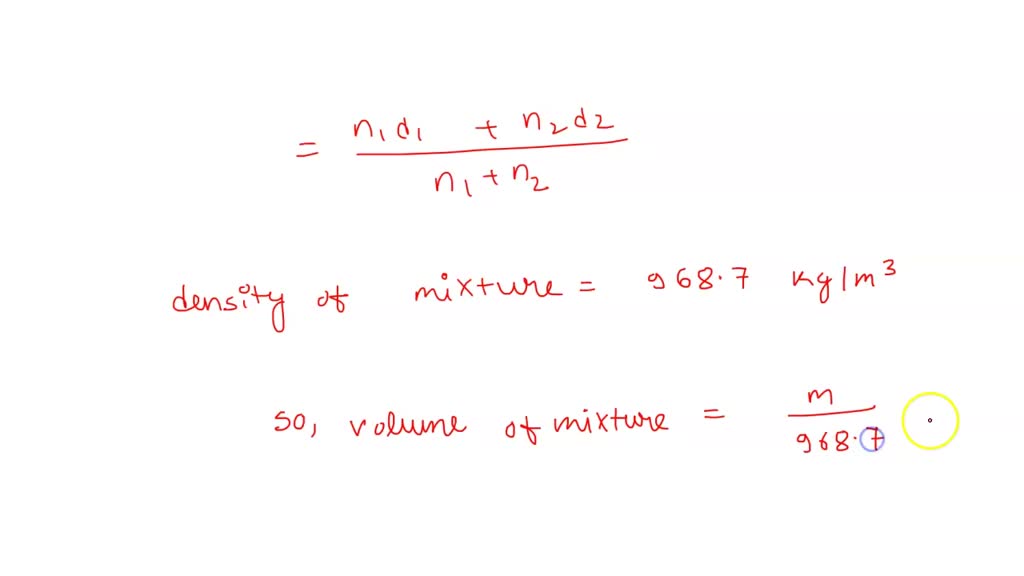 = n₁d₁ + n₂d₂ / n₁ + n₂
density of mixture = 968.7 kg/m³
so, volume of mixture = m / 968.7